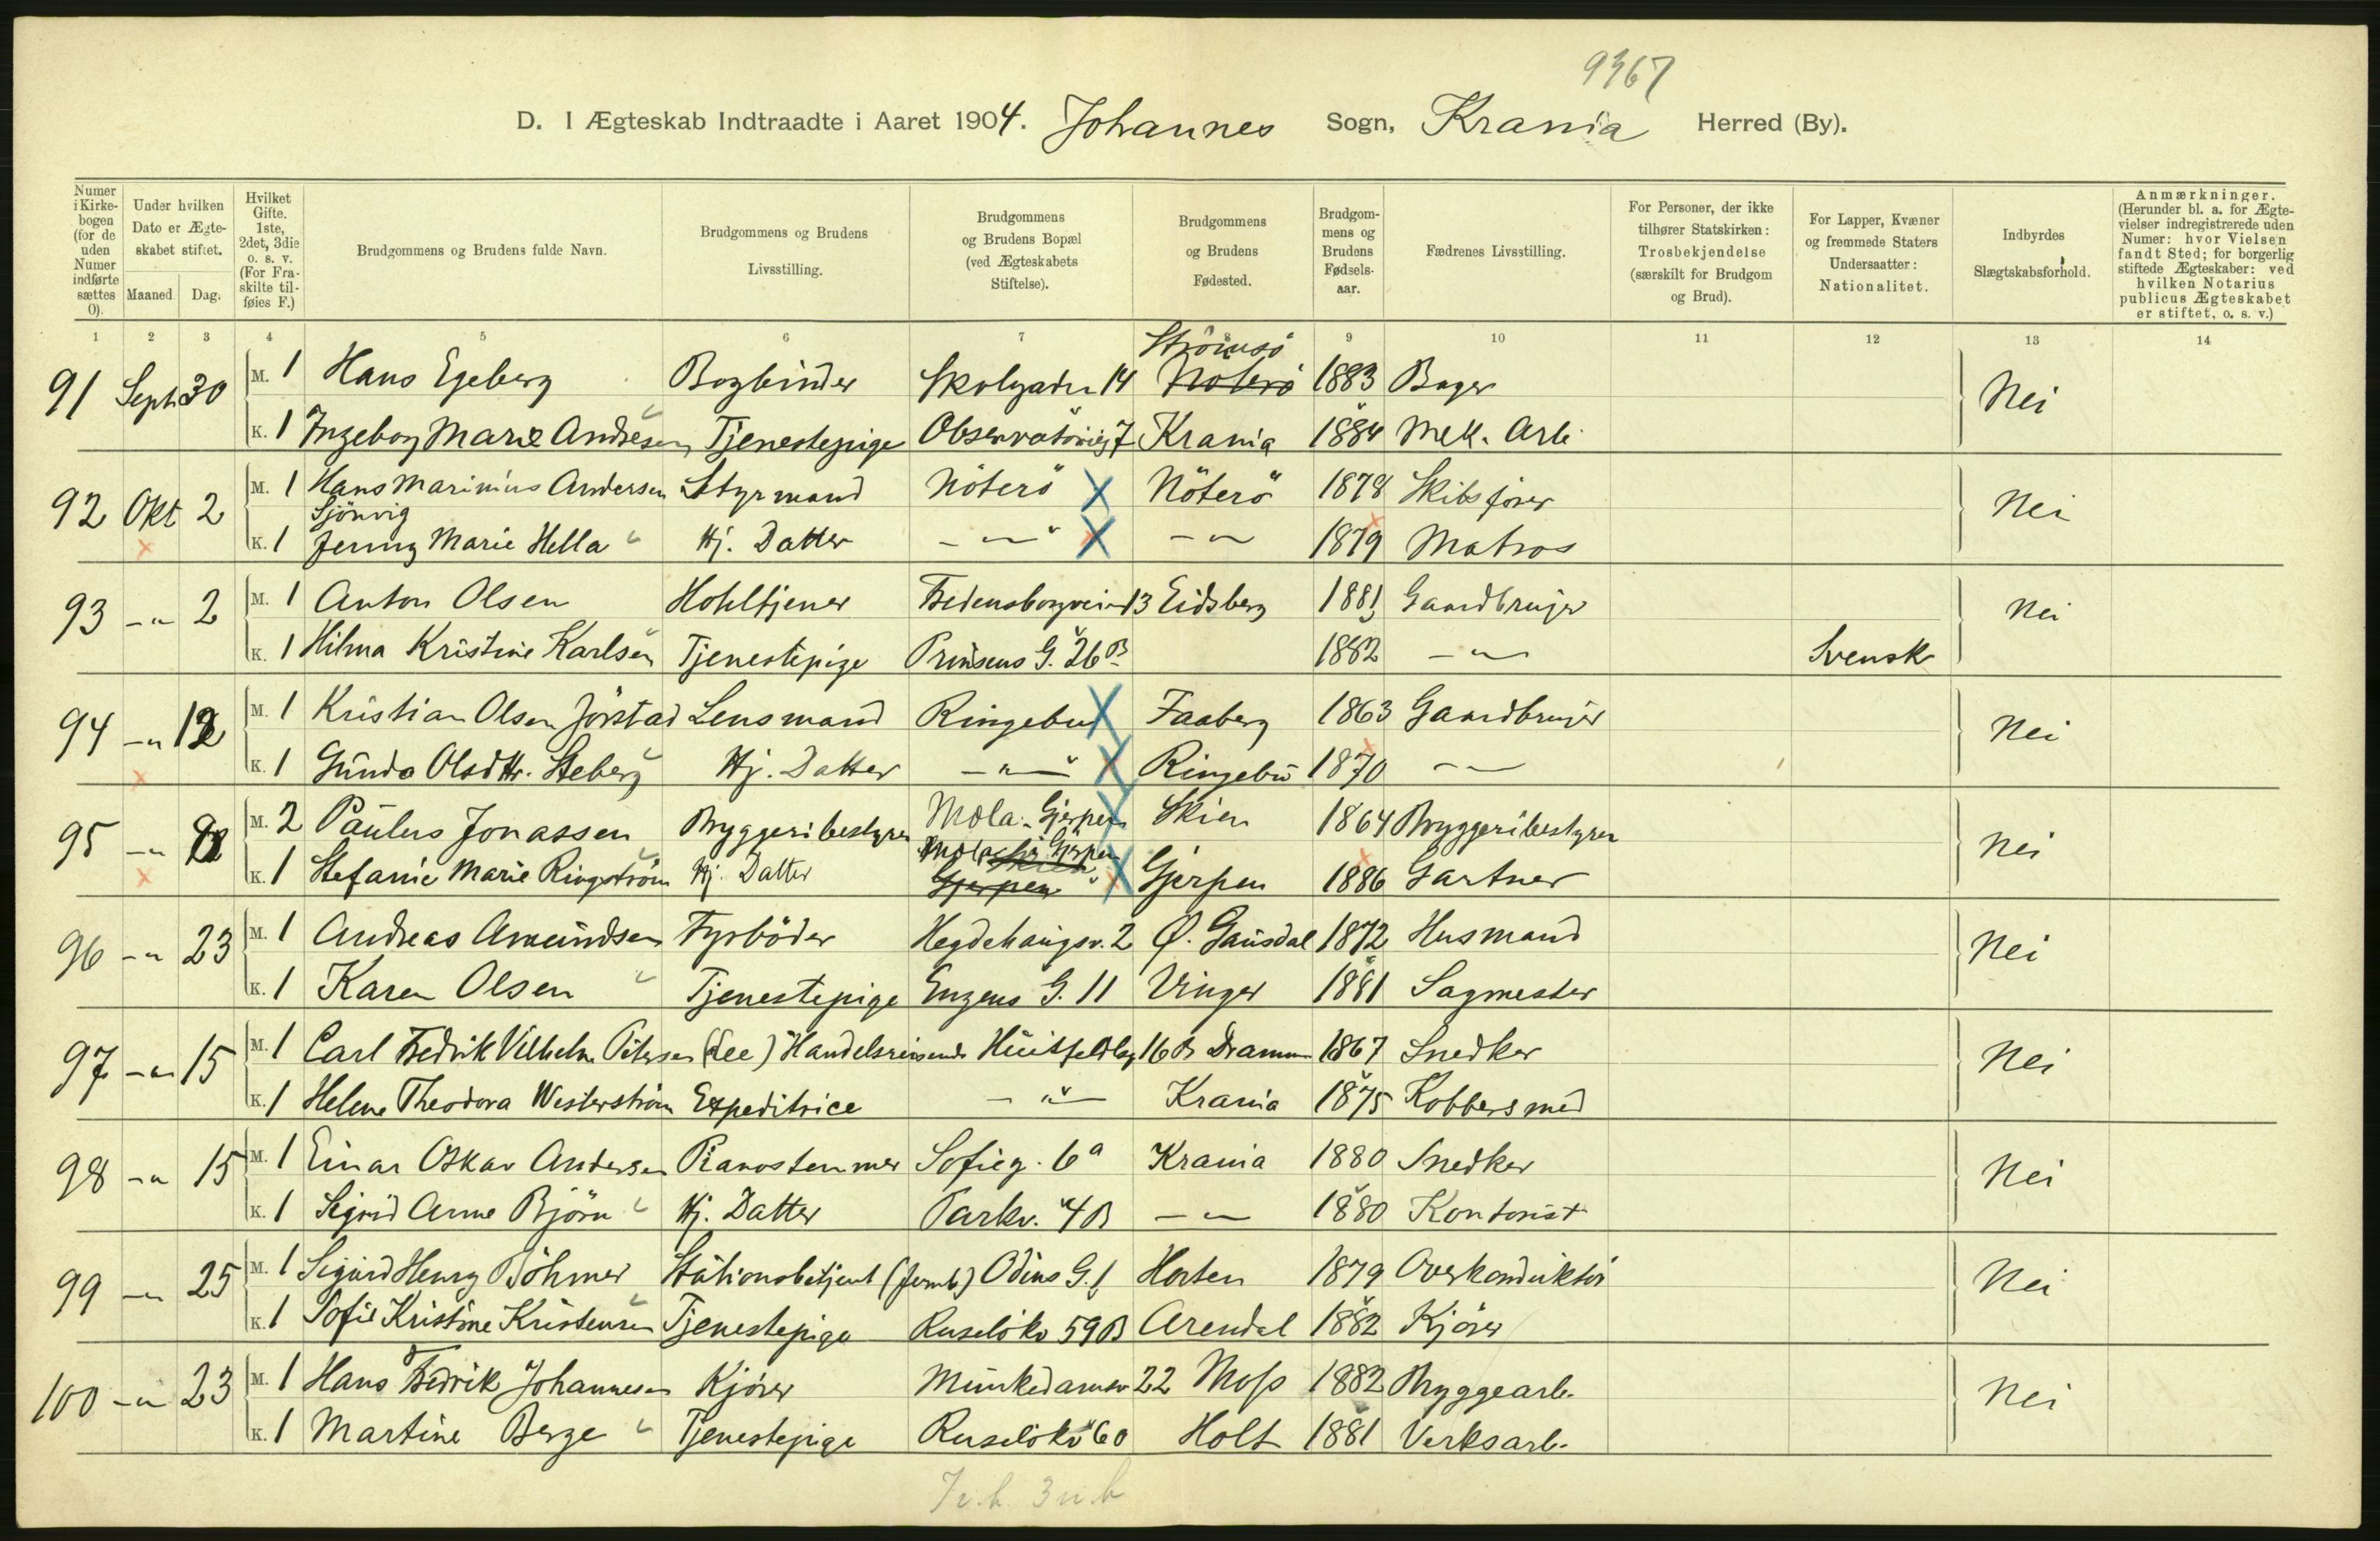 9367
D. I Ægteskab Indtraadte i Aaret 1904. Johannes Sogn, Krania Herred (By).
Numer i Kirkebogen (for de uden Numer indførte sættes 0).
Under hvilken Dato er Ægteskabet stiftet.
Maaned. Dag.
Hvilket Gifte. 1ste, 2det, 3die o. s. v. (For Fraskilte tilføies F.)
Brudgommens og Brudens fulde Navn.
Brudgommens og Brudens Livsstilling.
Brudgommens og Brudens Bopæl (ved Ægteskabets Stiftelse).
Brudgommens og Brudens Fødested.
Brudgommens og Brudens Fødselsaar.
Fædrenes Livsstilling.
For Personer, der ikke tilhører Statskirken: Trosbekjendelse (særskilt for Brudgom og Brud).
For Lapper, Kvæner og fremmede Staters Undersaatter: Nationalitet.
Indbyrdes Slægtskabsforhold.
Anmærkninger. (Herunder bl. a. for Ægtevielser indregistrerede uden Numer: hvor Vielsen fandt Sted; for borgerlig stiftede Ægteskaber: ved hvilken Notarius publicus Ægteskabet er stiftet, o. s. v.)
1 2 3 4 5 6 7 8 9 10 11 12 13 14
Strömsö
91 Sept. 30 M. 1 Hans Egeberg Bogbinder Skolgaden 14 Nöterö 1883 Bager Nei
K. 1 Ingeborg Marie Andresen Tjenestepige Observatöriég 7 Krania 1884 Mek. Arb.
92 Okt 2 M. 1 Hans Marinius Andersen Styrmand Nöterö Nöterö 1878 Skibsförer Nei
Sjönvig
K. 1 Jenny Marie Hella Hj. Datter -"- -"- 1879 Matros
93 -"- 2 M. 1 Anton Olsen Hoteltjener Fredensborgveien 13 Eidsberg 1881 Gaardbruger Nei
K. 1 Hilma Kristine Karlsen Tjenestepige Prinsens G. 26 B 1882 -"- Svensk
94 -"- 12 M. 1 Kristian Olsen Jörstad Lensmand Ringebu Faaberg 1863 Gaardbruger Nei
K. 1 Gunda Olsdtr. Steberg Hj. Datter -"- Ringebu 1870 -"-
95 -"- M. 2 Paulus Jonassen Bryggeribestyrer Mola. Gjerpen Skien 1864 Bryggeribestyrer Nei
Mola Gjerpen
K. 1 Stefanie Marie Ringström Hj. Datter Gjerpen Gjerpen 1886 Gartner
96 -"- 23 M. 1 Andreas Amundsen Fyrböder Hegdehaugsv. 2 Ø. Gausdal 1872 Husmand Nei
K. 1 Karen Olsen Tjenestepige Enzens G. 11 Vinger 1881 Sagmester
97 -"- 15 M. 1 Carl Fredrik Vilhelm Petersen (Lee) Handelsreisende Huitfeldtsg 16 B Drammen 1867 Snedker Nei
K. 1 Helene Theodora Westerström Expeditrice -"- Krania 1875 Kobbersmed
98 -"- 15 M. 1 Einar Oskar Andersen Pianostemmer Sofieg. 6a Krania 1880 Snedker Nei
K. 1 Sigrid Anne Björn Hj. Datter Parkv. 4 B -"- 1880 Kontorist
99 -"- 25 M. 1 Sigurd Henry Böhmer Stationsbetjent (Jernb.) Odins G. 1 Horten 1879 Overkonduktör Nei
K. 1 Sofie Kristine Kristensen Tjenestepige Ruselökv 59 B Arendal 1882 Kjörer
100 -"- 23 M. 1 Hans Fredrik Johannesen Kjörer Munkedamsv 22 Moss 1882 Bryggearb. Nei
K. 1 Martine Berge Tjenestepige Ruselökv 60 Holt 1881 Verksarb.